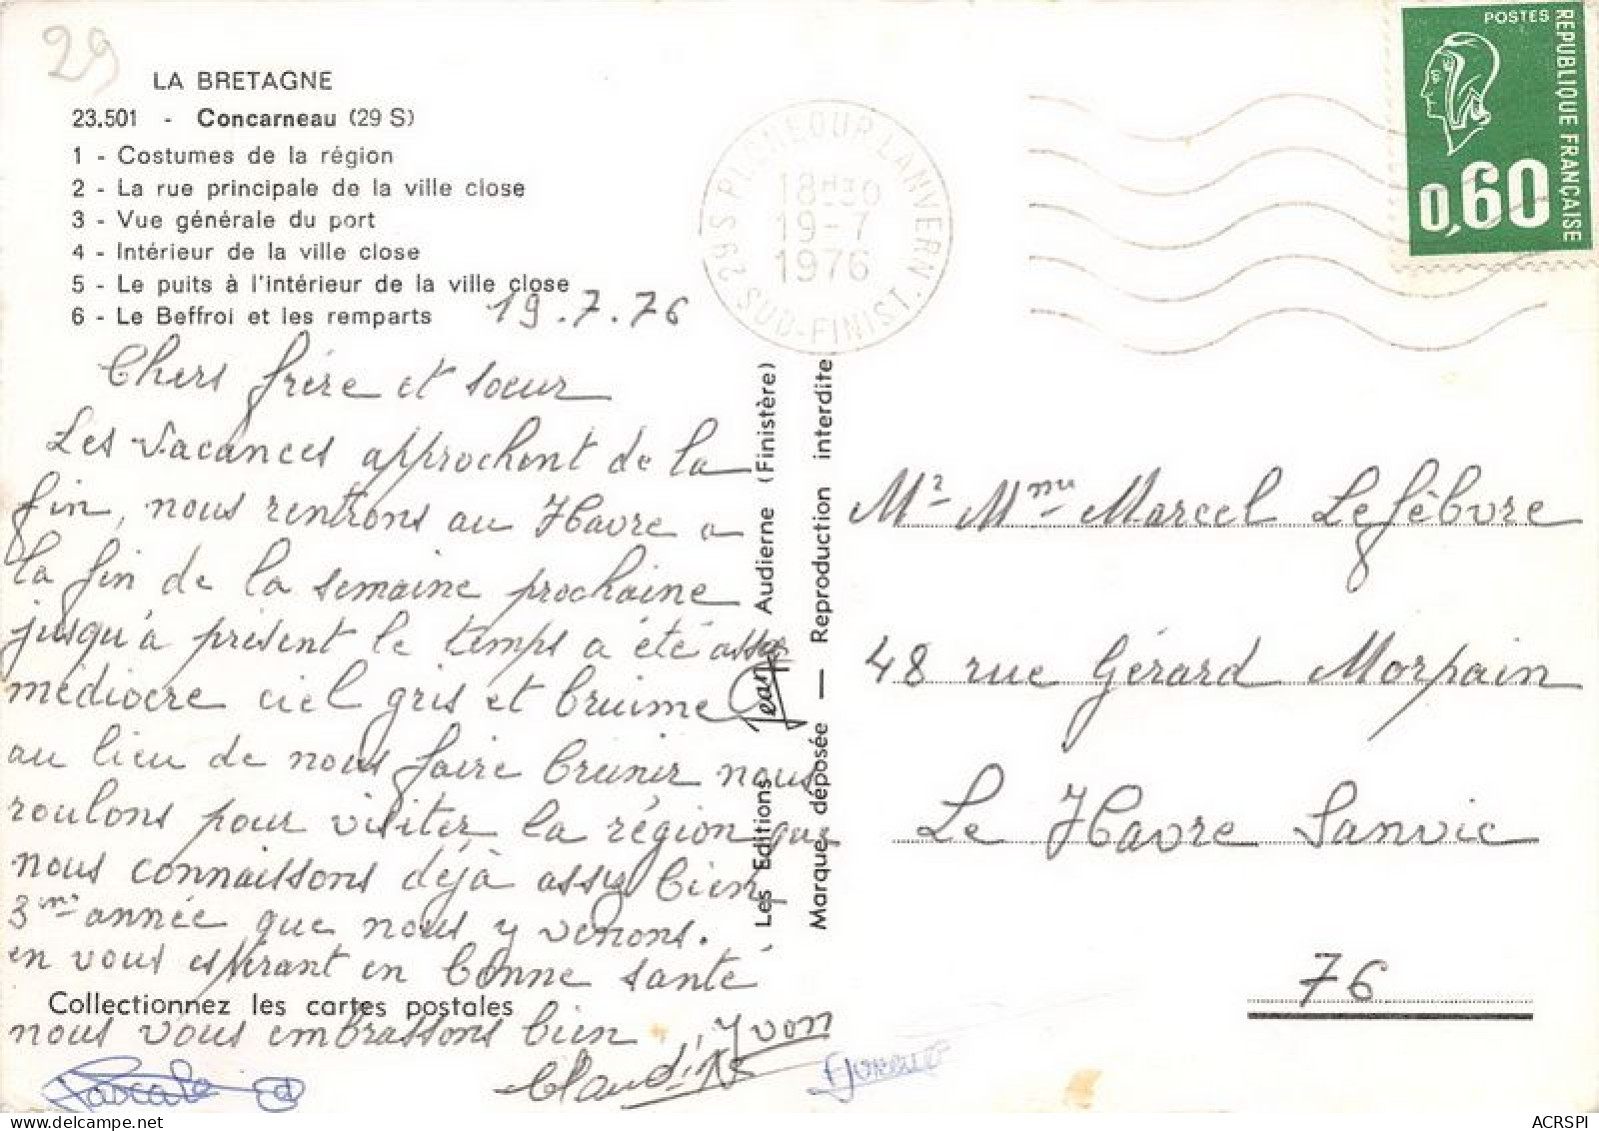 29
LA BRETAGNE
23.501 - Concarneau (29 S)
1 - Costumes de la région
2 - La rue principale de la ville close
3 - Vue générale du port
4 - Intérieur de la ville close
5 - Le puits à l'intérieur de la ville close
6 - Le Beffroi et les remparts
19.7.76
Chers frère et soeur
Les vacances approchent de la
fin, nous rentrons au Havre a
la fin de la semaine prochaine
jusqu'à présent le temps a été assez
médiocre ciel gris et bruime
au lieu de nous faire brunir nous
roulons pour visiter la région que
nous connaissons déjà assez bien
3me année que nous y venons.
en vous espérant en bonne santé
Collectionnez les cartes postales
nous vous embrassons bien, Yvon
Pascale
Claudine
Les Editions Jean Audierne (Finistère)
Marque déposée — Reproduction interdite
29S PLONEOUR LANVERN
18H30
19-7
1976
SUD-FINIST.
POSTES
REPUBLIQUE FRANÇAISE
0,60
Mr Mme Marcel Lefèbvre
48 rue Gérard Morpain
Le Havre Sanvic
76
ACRSPI